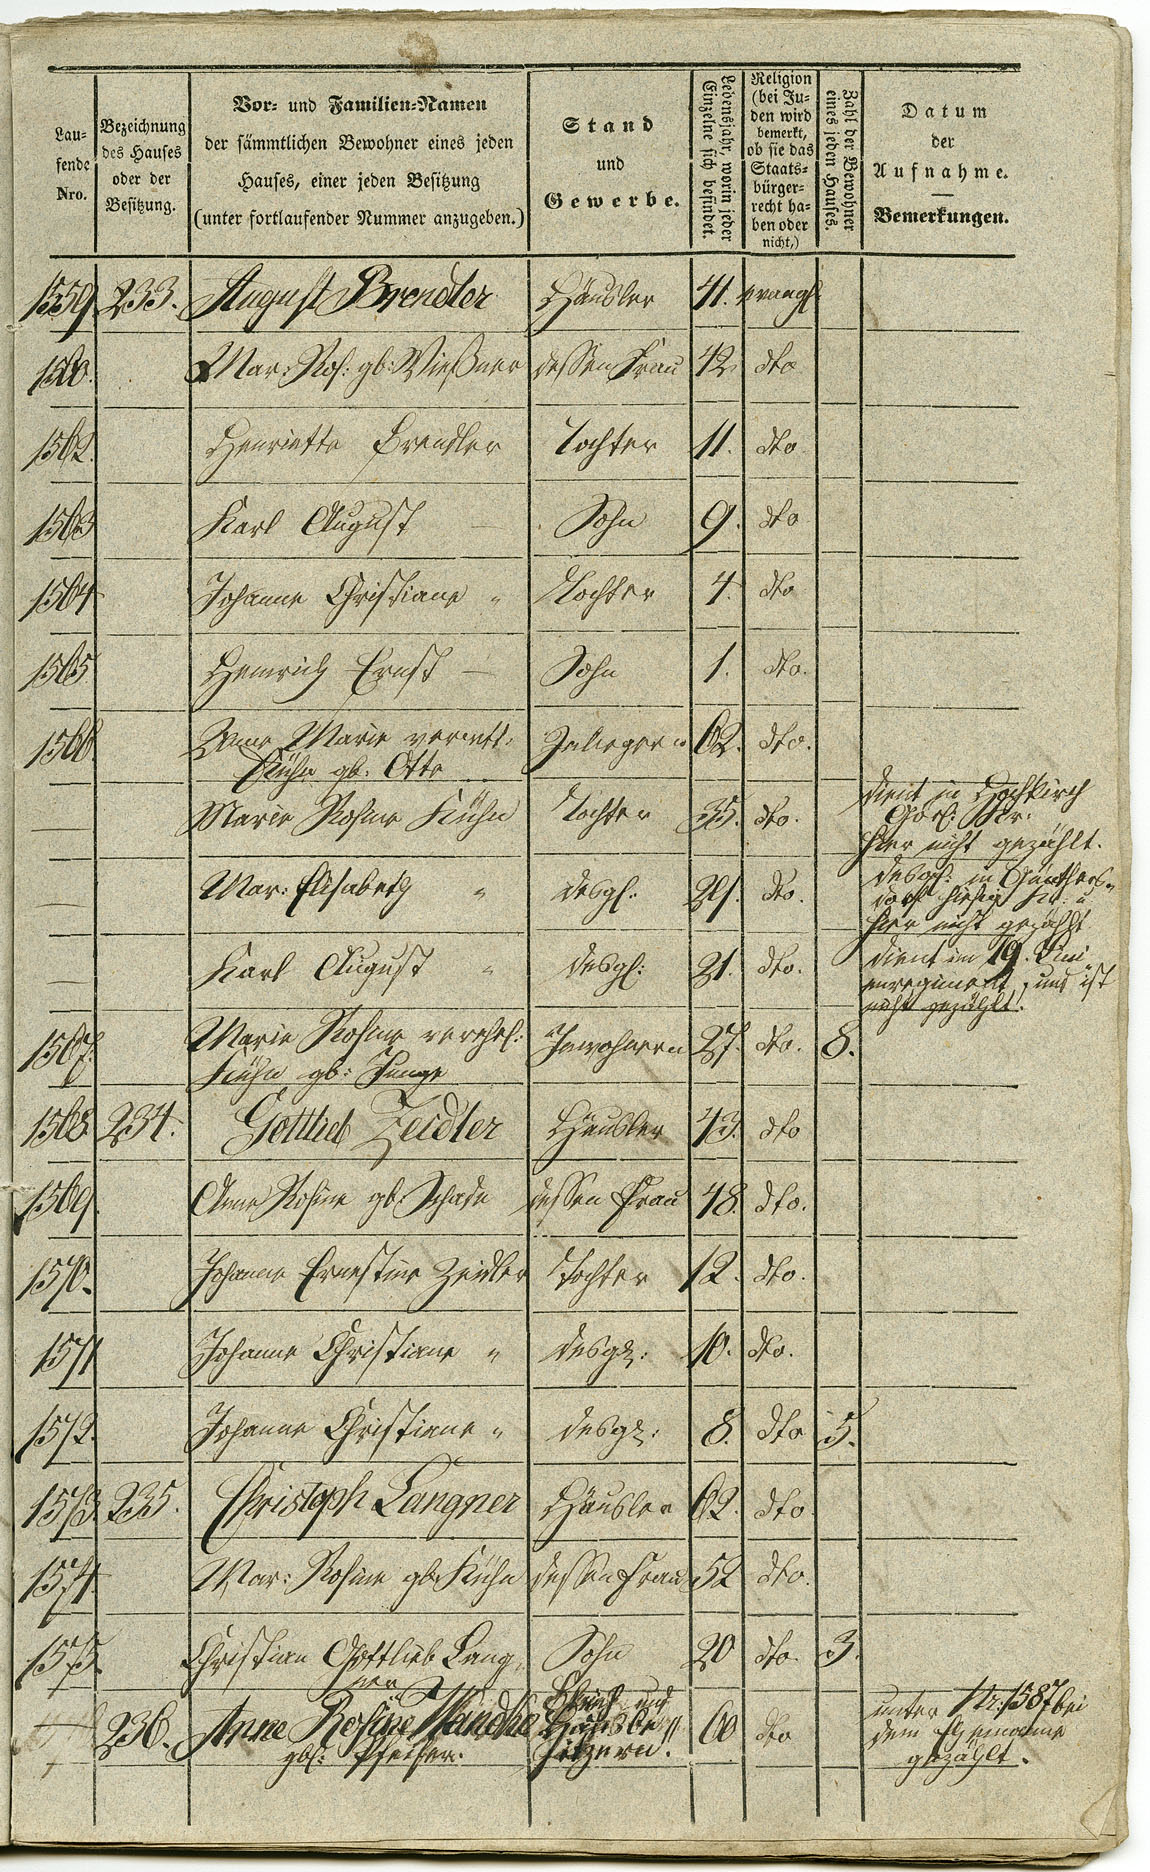 Lau-
fende
Nro.
Bezeichnung
des Hauses
oder der
Besitzung.
Vor- und Familien-Namen
der sämmtlichen Bewohner eines jeden
Hauses, einer jeden Besitzung
(unter fortlaufender Nummer anzugeben.)
Stand
und
Gewerbe.
Lebensjahr, worin jeder
Einzelne sich befindet.
Religion
(bei Ju-
den wird
bemerkt,
ob sie das
Staats-
bürger-
recht ha-
ben oder
nicht,)
Zahl der Bewohner
eines jeden Hauses.
Datum
der
Aufnahme.
Bemerkungen.
1559 233. August Brendler Häusler 41. evangl.
1560. Mar: Ros: gb: Wießner dessen Frau 42 dto
1562. Henriette Brendler Tochter 11. dto
1563 Karl August — Sohn 9. dto
1564 Johanne Christiane " Tochter 4. dto
1565 Heinrich Ernst — Sohn 1. dto.
1566. Anne Marie verwitt: 62. dto.
Kühn gb: Otto
— Marie Rosine Kühn Tochter 35. dto. dient in Hochkirch
Görl: Kr:
hier nicht gezählt.
— Mar: Elisabeth " desgl. dto. desgl: in Günthers-
dorf hiesig Kr: u
hier nicht gezählt
— Karl August " desgl: 21. dto. dient im 19. Lini
enregiment, und ist
nicht gezählt.
1567. Marie Rosine verehel: Inwohnern 27. dto. 8.
Kühn gb: Junge
1568 234. Gottlieb Zeidler Häusler 43. dto
1569. Anne Rosine gb: Schade dessen Frau 48. dto.
1570. Johanne Ernestine Zeidler Tochter 12. dto.
1571 Johanne Christiane " desgl: 10. dto.
1572. Johanne Christiane " desgl: 8. dto 5.
1573. 235. Christoph Langner Häusler 62. dto
1574 Mar: Rosine gb: Kühn dessen Frau 52 dto.
1575. Christian Gottlieb Lang- Sohn 20 dto. 3.
ner
236. Anne Rosine Handke 60 dto unter Nr: 1587 bei
gb: Pfeifer. Häusbe-
sitzern. dem Ehemanne
gezählt.